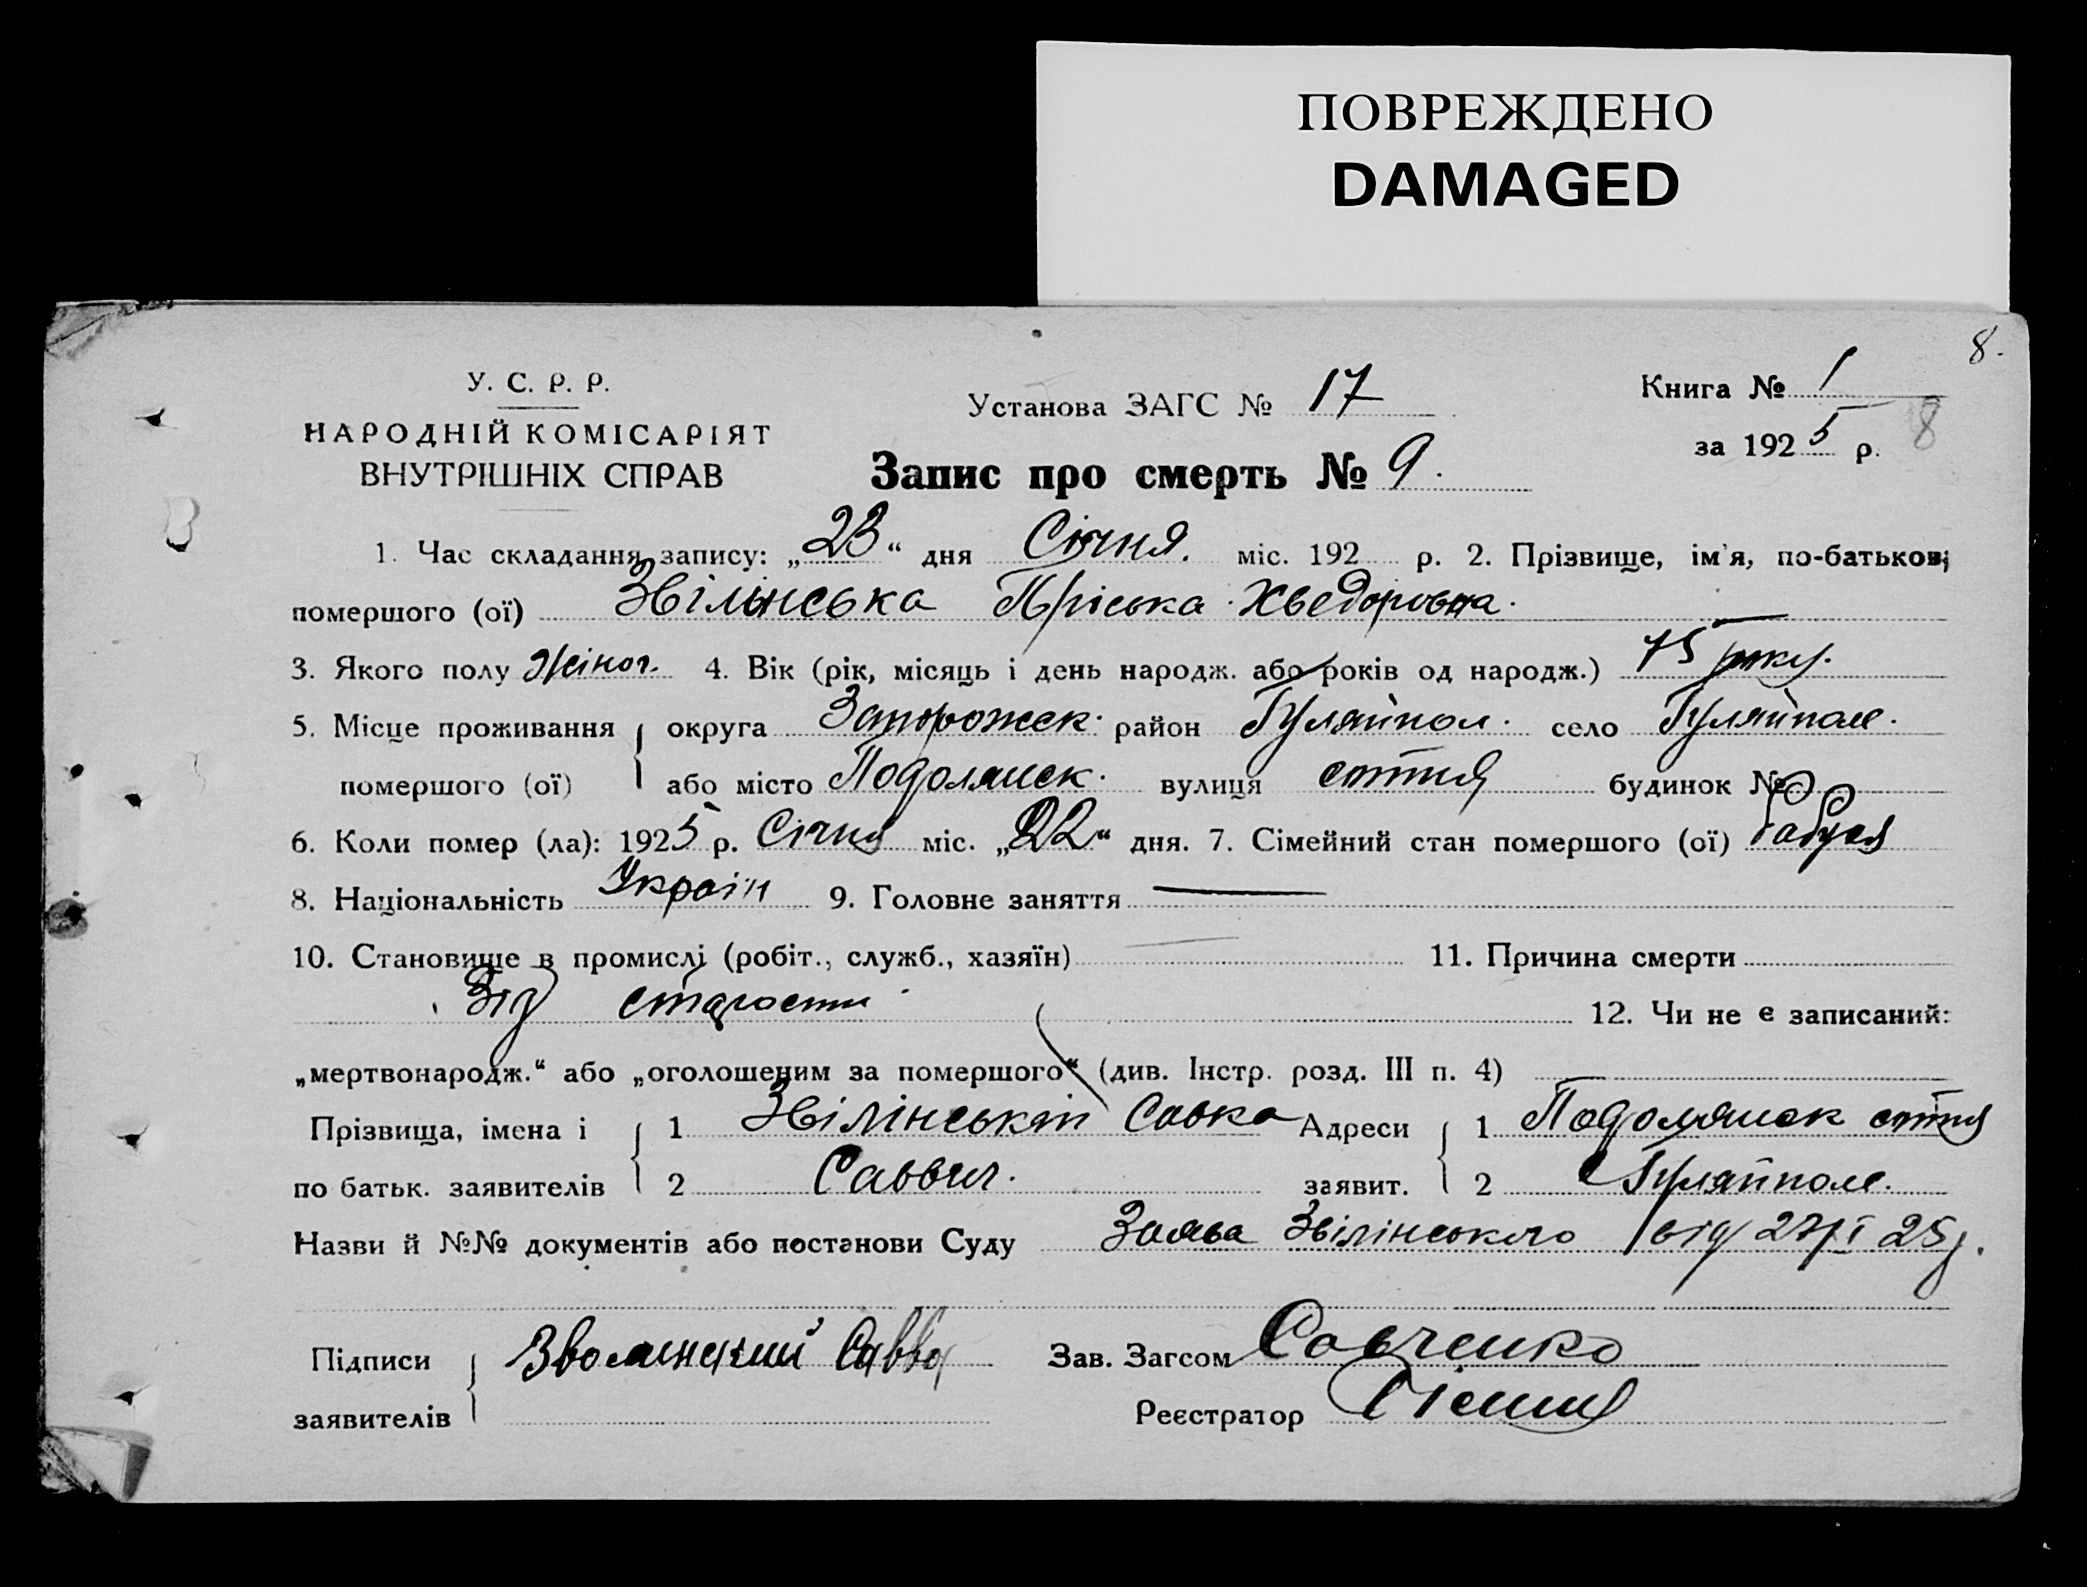 ПОВРЕЖДЕНО
DAMAGED
8.
У. С. Р. Р.
НАРОДНІЙ КОМІСАРІЯТ
ВНУТРІШНІХ СПРАВ
Установа ЗАГС № 17
Книга № 1
за 1925 р. 8
Запис про смерть № 9.
1. Час складання запису: „23“ дня Січня. міс. 192 р. 2. Прізвище, ім'я, по-батькові
помершого (ої) Звілінська Пріська Хведоровна.
3. Якого полу Жіноч. 4. Вік (рік, місяць і день народж. або років од народж.) 75 року.
5. Місце проживання округа Запорожск. район Гуляйпол. село Гуляйполе.
помершого (ої) або місто Подолянск. вулиця сотня будинок №
6. Коли помер (ла): 1925 р. Січня міс. „22“ дня. 7. Сімейний стан помершого (ої)
8. Національність Україн 9. Головне заняття
10. Становище в промислі (робіт., служб., хазяїн) 11. Причина смерти
Від старости 12. Чи не є записаний:
„мертвонародж.“ або „оголошеним за помершого“ (див. Інстр. розд. III п. 4)
Прізвища, імена і 1 Звілінській Савка Адреси 1 Подолянск сотня
по батьк. заявителів 2 Саввич. заявит. 2 Гуляйполе.
Назви й №№ документів або постанови Суду Заява Звілінського від 25 р.
Підписи Зволинский Савва Зав. Загсом Савченко
заявителів Реєстратор